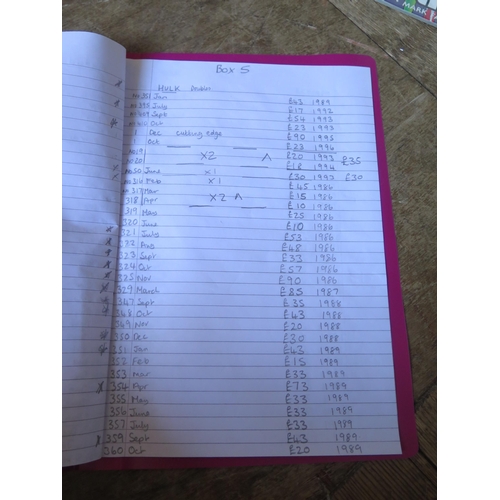 MARK
Box 5
HULK
No 351 Jan £43 1989
No 395 July £17 1992
Sept £54 1993
Oct £23 1993
1 Dec Cutting edge £90 1995
1 Oct £23 1996
No 19 X2 A £20 1993 £35
No 20 £18 1994
No 50 June X1 £30 1992 £30
No 316 Feb X1 £45 1986
No 317 Mar £15 1986
318 Apr X2 A £10 1986
319 May £25 1986
320 June £10 1986
321 July £53 1986
322 £48 1986
323 Sept £33 1986
324 Oct £57 1986
325 Nov £90 1986
329 March £85 1987
347 Sept £35 1988
348 Oct £43 1988
349 Nov £20 1988
350 Dec £30 1988
351 Jan £43 1989
352 Feb £15 1989
353 Mar £33 1989
354 Apr £73 1989
355 May £33 1989
356 June £33 1989
357 July £33 1989
359 Sept £43 1989
360 Oct £20 1989